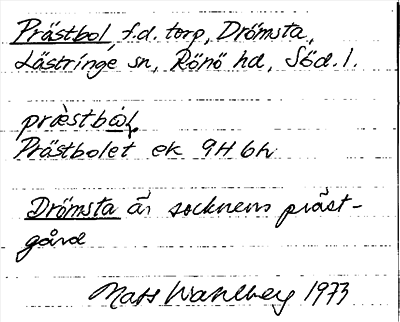 Prästbol, f.d. torp, Drömsta,
Lästringe sn, Rönö hd, Söd. l.
præstbωl
Prästbolet ek 9H 6h
Drömsta är socknens präst-
gård
Mats Wahlberg 1973